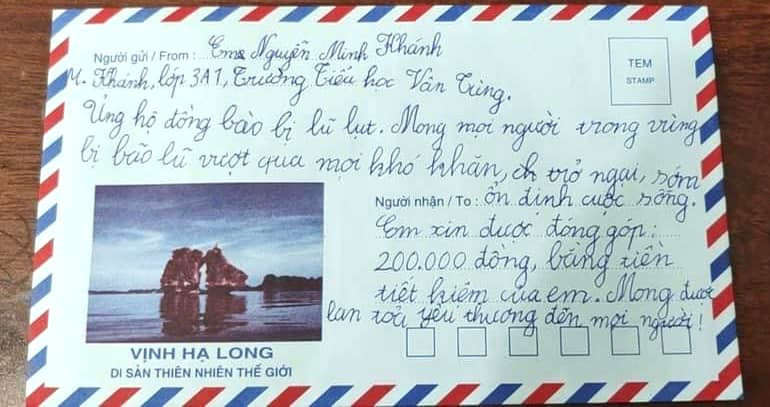 Người gửi / From : Em Nguyễn Minh Khánh
M. Khánh, lớp 3A1, Trường Tiểu học Vân Trùng.
TEM
STAMP
Ủng hộ đồng bào bị lũ lụt. Mong mọi người trong vùng
bị bão lũ vượt qua mọi khó khăn, trở ngại, sớm
Người nhận / To : ổn định cuộc sống.
Em xin được đóng góp:
200.000 đồng, bằng tiền
tiết kiệm của em. Mong được
lan toả yêu thương đến mọi người!
VỊNH HẠ LONG
DI SẢN THIÊN NHIÊN THẾ GIỚI